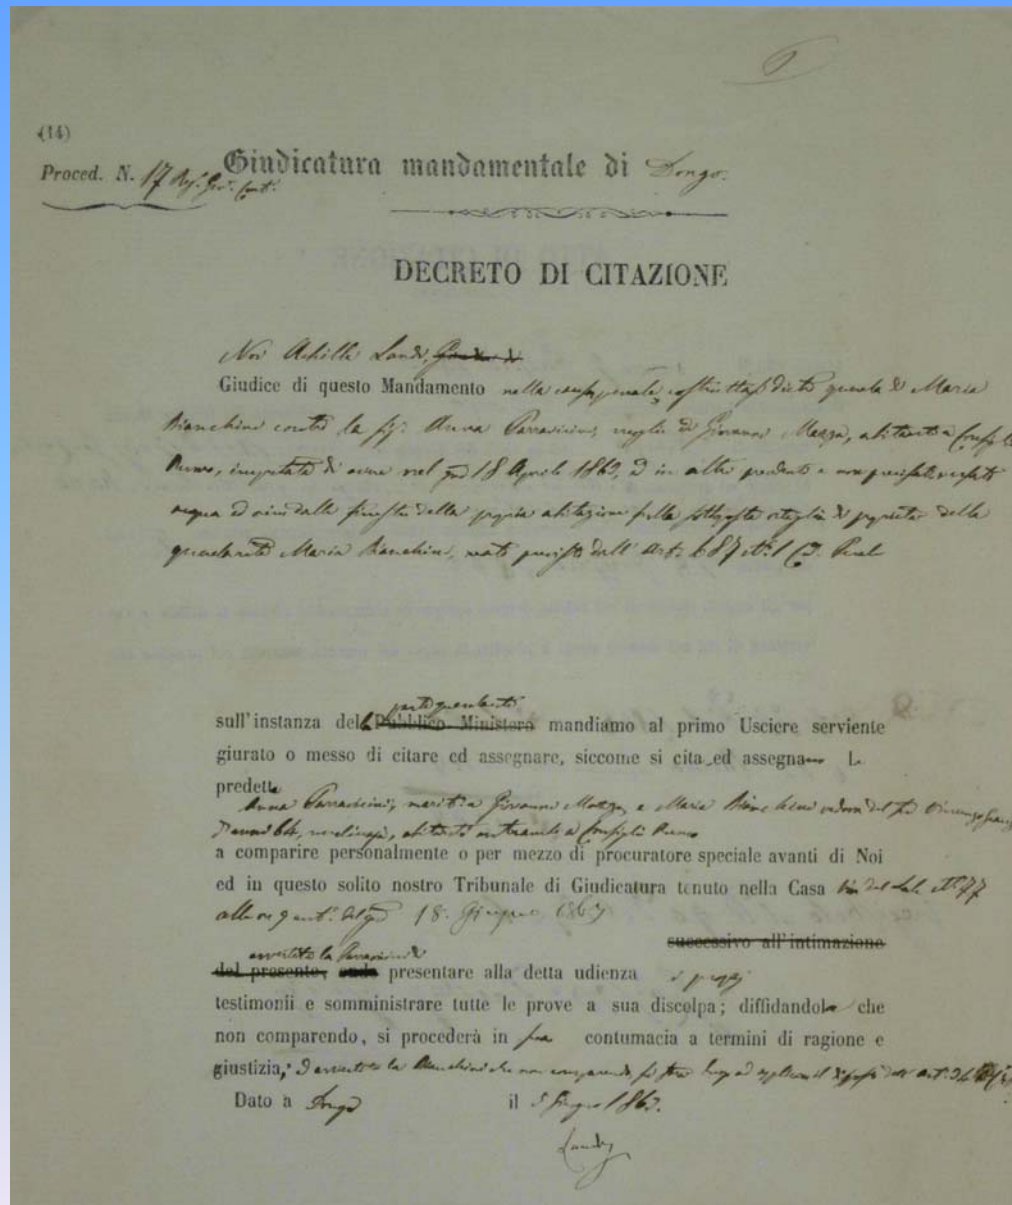 (14)
Proced. N. 17
Giudicatura mandamentale di Dongo.
DECRETO DI CITAZIONE
Noi Achille Landi,
Giudice di questo Mandamento nella causa penale, dietro querela di Maria
Bianchini contro la Anna Parravicini, moglie di Giovanni Mazza, abitante a
imputata di avere nel 18 Aprile 1863, ed in altri precedenti
acqua ed dalla finestra della propria abitazione sulla sottoposta di proprietà della
querelante Maria Bianchini, reato previsto dall' Art. 687 N. 1 Cod. Penale
parte querelante
sull'instanza della Pubblico Ministero mandiamo al primo Usciere serviente
giurato o messo di citare ed assegnare, siccome si cita ed assegnano L
predette
Anna Parravicini, a Giovanni Mazza, e Maria Bianchini vedova del fu Vincenzo
abitanti entrambe a
a comparire personalmente o per mezzo di procuratore speciale avanti di Noi
ed in questo solito nostro Tribunale di Giudicatura tenuto nella Casa N. 77
alle ore 9 ant. del 18 Giugno 1863
successivo all'intimazione
avvertita la Parravicini di
del presente, onde presentare alla detta udienza i propri
testimonii e somministrare tutte le prove a sua discolpa; diffidandola che
non comparendo, si procederà in sua contumacia a termini di ragione e
giustizia, ed avvertita la Bianchini che non comparendo art.
Dato a Dongo il 5 Giugno 1863.
Landi